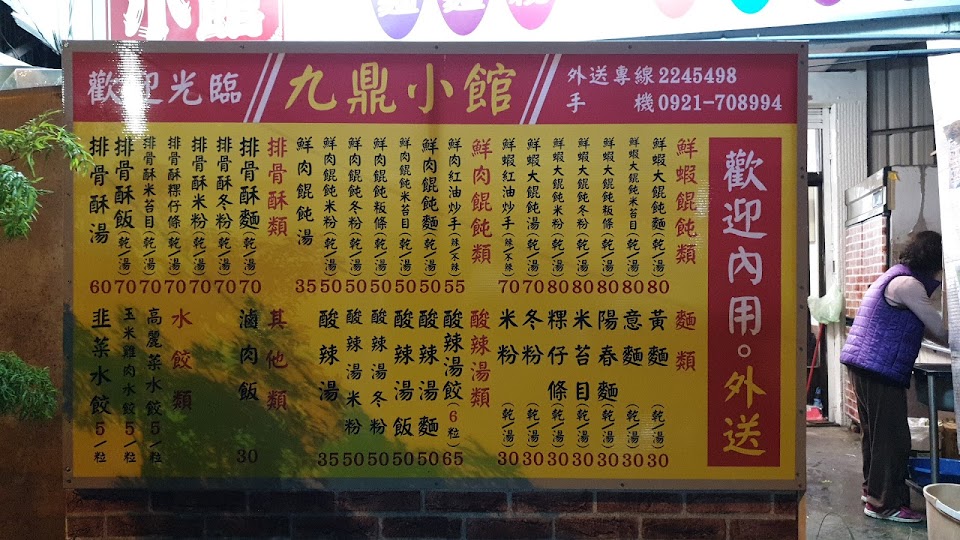 歡迎光臨
九鼎小館
外送專線2245498
手機0921-708994
歡迎內用。外送
鮮蝦餛飩類
鮮蝦大餛飩麵(乾/湯)80
鮮蝦大餛飩米苔目(乾/湯)80
鮮蝦大餛飩粄條(乾/湯)80
鮮蝦大餛飩冬粉(乾/湯)80
鮮蝦大餛飩米粉(乾/湯)80
鮮蝦大餛飩湯(乾/湯)70
鮮蝦紅油炒手(辣/不辣)70
鮮肉餛飩類
鮮肉紅油炒手(辣/不辣)55
鮮肉餛飩麵(乾/湯)50
鮮肉餛飩米苔目(乾/湯)50
鮮肉餛飩粄條(乾/湯)50
鮮肉餛飩冬粉(乾/湯)50
鮮肉餛飩米粉(乾/湯)50
鮮肉餛飩湯35
排骨酥類
排骨酥麵(乾/湯)70
排骨酥冬粉(乾/湯)70
排骨酥米粉(乾/湯)70
排骨酥粿仔條(乾/湯)70
排骨酥米苔目(乾/湯)70
排骨酥飯(乾/湯)70
排骨酥湯60
麵類
黃麵(乾/湯)30
意麵(乾/湯)30
陽春麵(乾/湯)30
米苔目(乾/湯)30
粿仔條(乾/湯)30
冬粉(乾/湯)30
米粉(乾/湯)30
酸辣湯類
酸辣湯餃(6粒)65
酸辣湯麵50
酸辣湯飯50
酸辣湯冬粉50
酸辣湯米粉50
酸辣湯35
其他類
滷肉飯30
水餃類
高麗菜水餃5/粒
玉米雞肉水餃5/粒
韭菜水餃5/粒